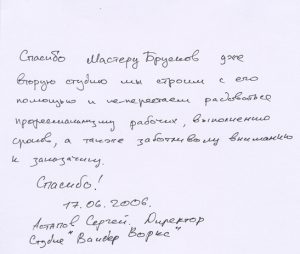 Спасибо Мастеру Брусков уже
вторую студию мы строим с его
помощью и не перестаем радоваться
профессионализму рабочих, выполнению
сроков, а также заботливому вниманию
к заказчику.
Спасибо!
17.06.2006.
Астапов Сергей. Директор
Студия "Вайбер Воркс"